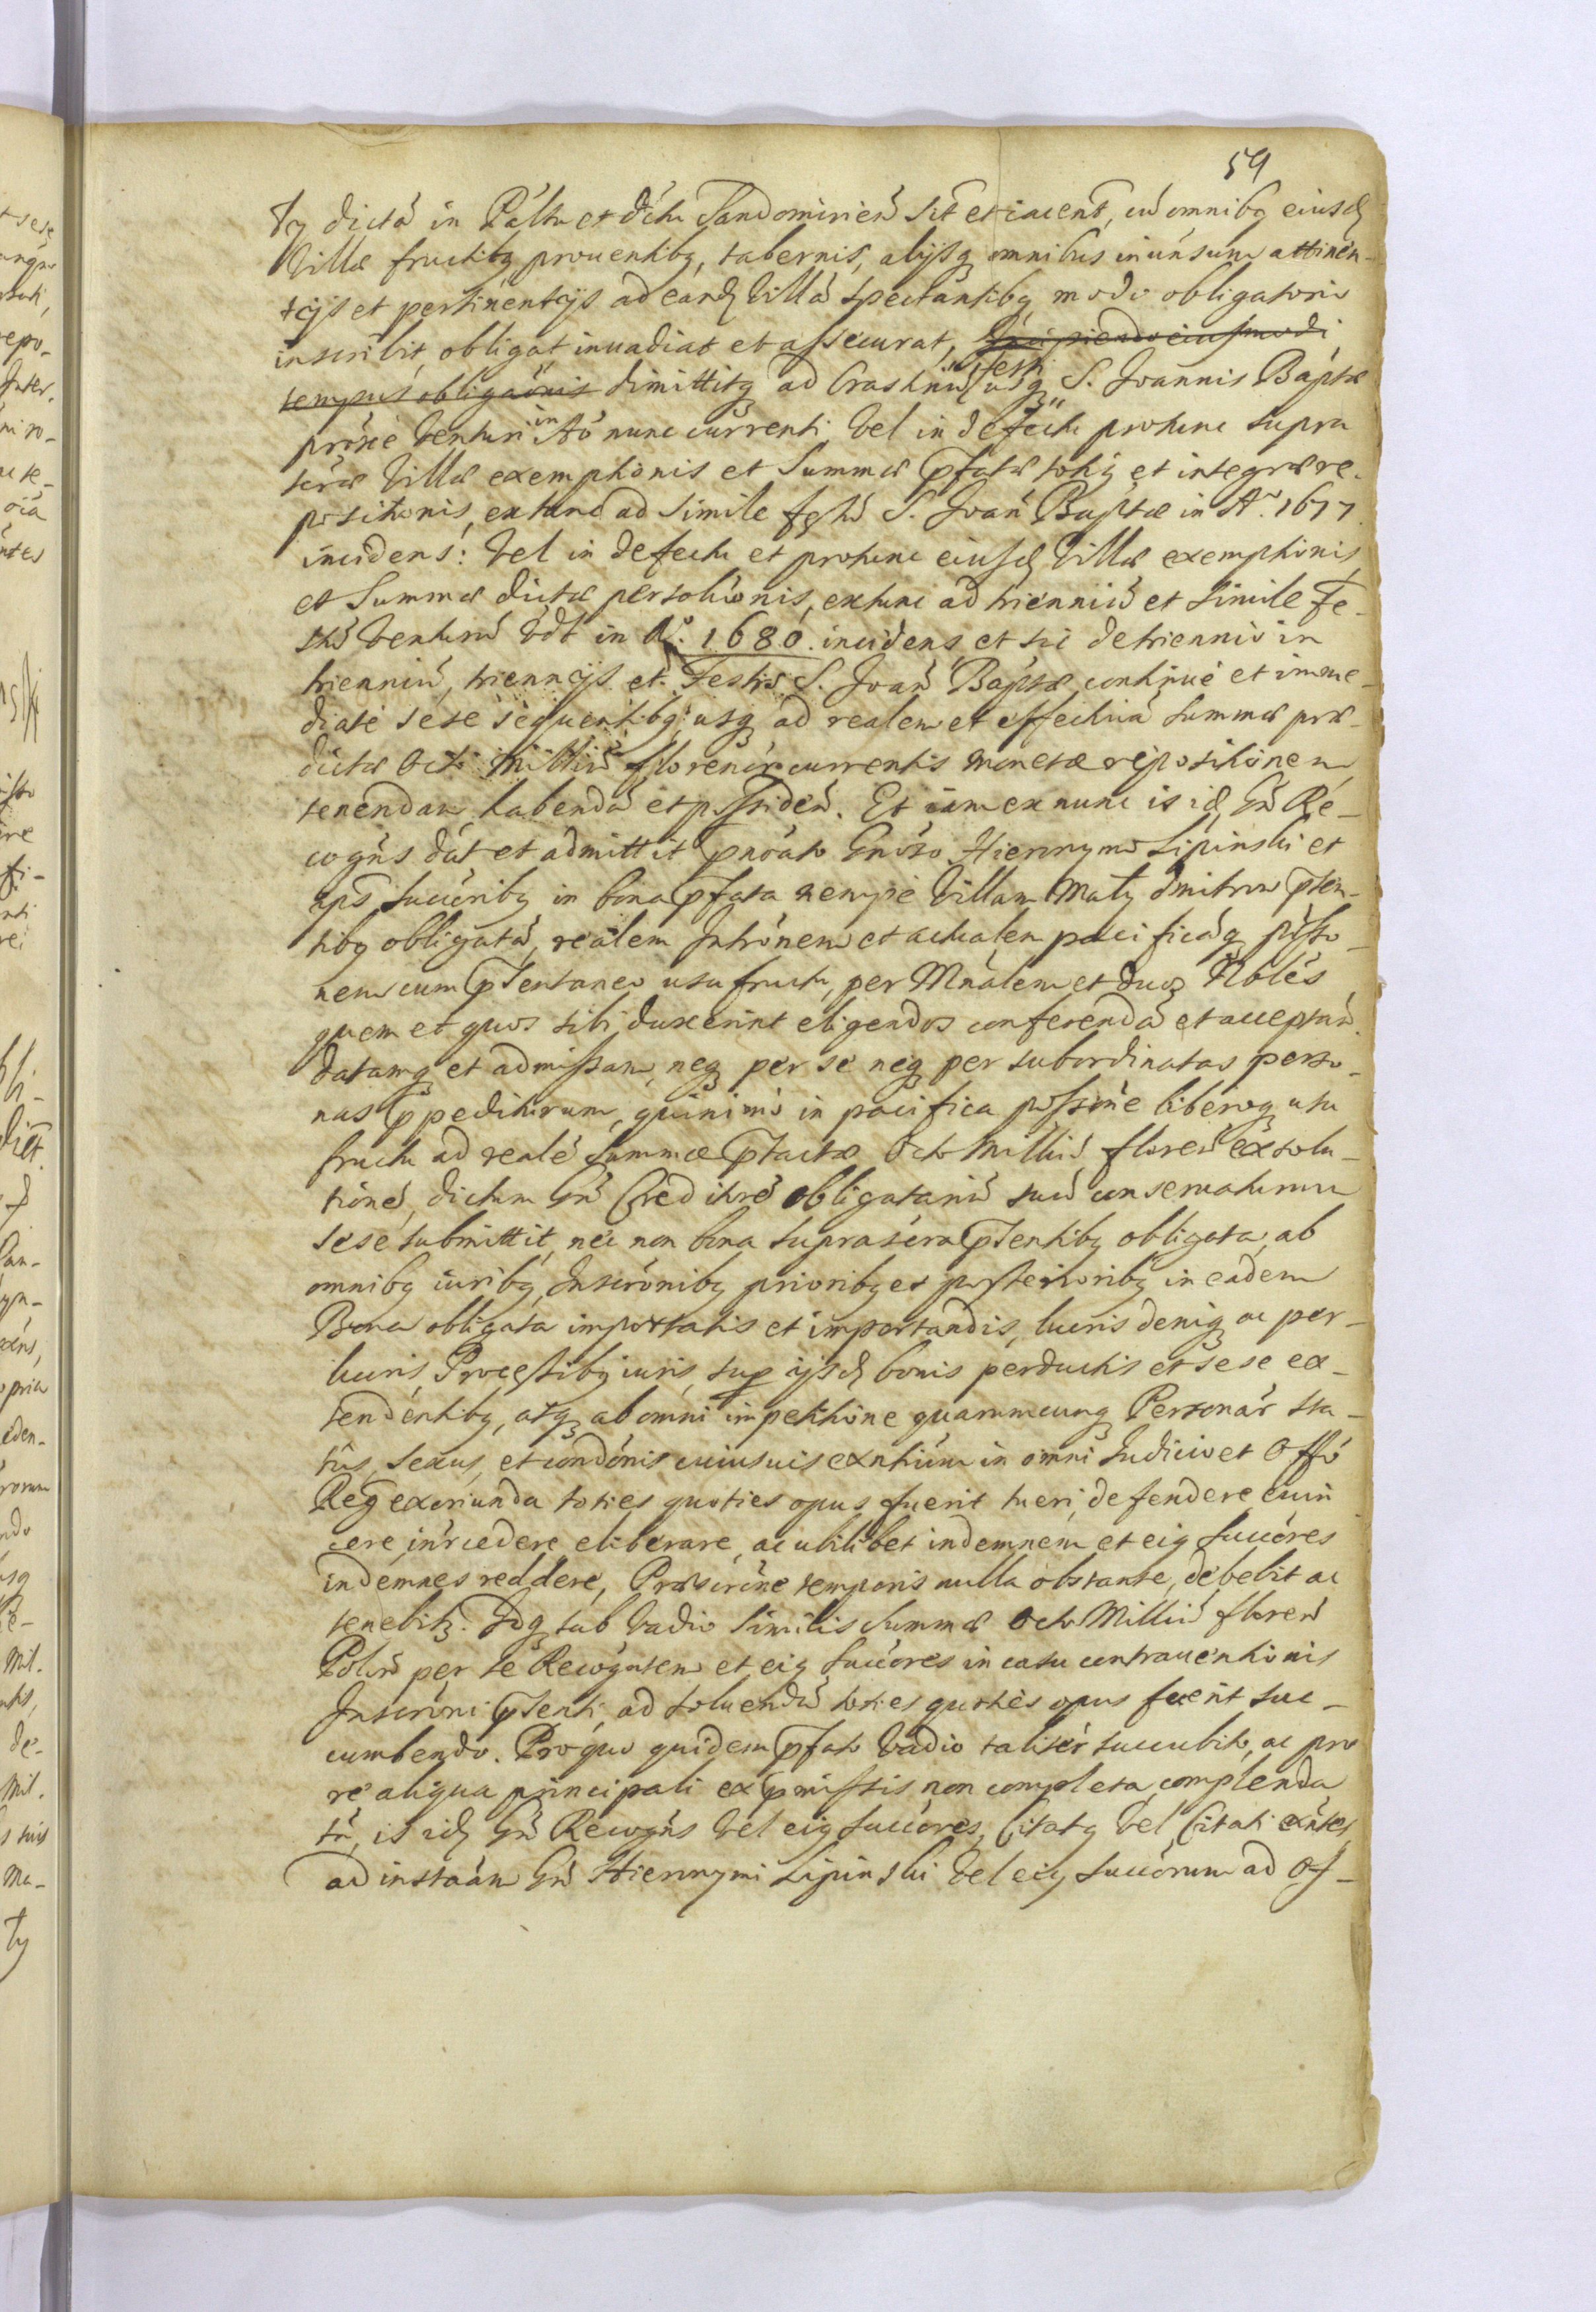 59
ty dictã in Páltu et dčtu Sandomirień sit et iacent, cũ omnibq eiusd
Villæ fructibq prouentibq, tabernis, alijsq omnibus in uńsum attinen-
tijs et pertinentijs ad eand Villã spectantibq modo obligatorio
inscribit, obligat inuadiat et assecurat, Incipiendo eiusmodi
tempus obligaõnis dimittitq ad Crastinũ festi usq S. Joannis Baptæ
próxe venturi in Aõ nunc currenti. Vel in defectu protunc supra
scrõæ Villæ exemptionis et Summæ pfatæ totiq et integræ re-
positionis, extunc ad simile festũ S. Joań Baptæ in Aº. 1677
incidens: Vel in defectu et protunc eiusd Villæ exemptionis,
et Summæ dictæ persolũonis, extunc ad trienniũ et simile Fe-
stũ venturũ vdt in Aº. 1680. incidens, et sic de triennio in
trienniũ, triennijs et Festis S. Joań Baptæ continué et imme-
diaté sese sequentibq usq ad realem et effectiuã summæ præ-
dictæ Octo Milliũ florenór currentis monetæ repositionem
tenendam habendã et possideń. Et iam ex nunc is id Gń Re-
cogńs dát et admittit pnõato Gnóso Hieronymo Lipinski et
ips succóribq in bona pfata nempé Villam Mały Dmitrow pńn-
tibq obligatã, realem Intrõnem et actualem pacificãq posso-
nem cum pńsentaneo usufructu, per Mnálem et duos Nobles
quem et quos sibi duxerint eligendos conferendã et acceptań
datamq et admissam, neq per se neq per subordinatas perso-
nas ppediturum, quinimo in pacifica possone liberoq usu
fructu ad realé summæ ptactæ Octo Milliũ floreń exsolu-
tioné, dictum Gń Creditoré obligatariũ suũ conseruaturum
sese submittit, nec non bona suprascra pńsentibq obligata, ab
omnibq iuribq Inscrõnibq prioribq et posterioribq in eadem
Bona obligata importatis et importandis, lucris deniq ac per-
lucris, Procestibq iuris, sup ijsd bonis perductis et sese ex-
tendentibq, atq ab omni impetitione quarumcunq Personár sta-
tus, sexus, et condónis cuiusuis exntium in omni Iudicio et Offo
Reg exoriunda toties quoties opus fuerit tueri, defendere euin
cere, intrcedere, eliberare, ac ubilibet indemnem et eiq succóres
indemnes reddere, Præscrõne temporis nulla obstante, debebit ac
tenebitq. Idq sub vadio similis summæ Octo Milliũ floreń
Polon per se Recogntem et eiq succóres in casu contrauentionis
Inscrõni pńsenti, ad soluendũ toties quoties opus fuerit suc-
cumbendo. Pro quo quidem pfato vadio taliter succubito, ac pro
re aliqua principali ex pmissis non completa, complenda
tń, is id Gń Recogńs vel eiq succóres, Citatq vel Citati exntes
ad instaám Gń Hieronymi Lipinski vel eiq succórum ad Of-